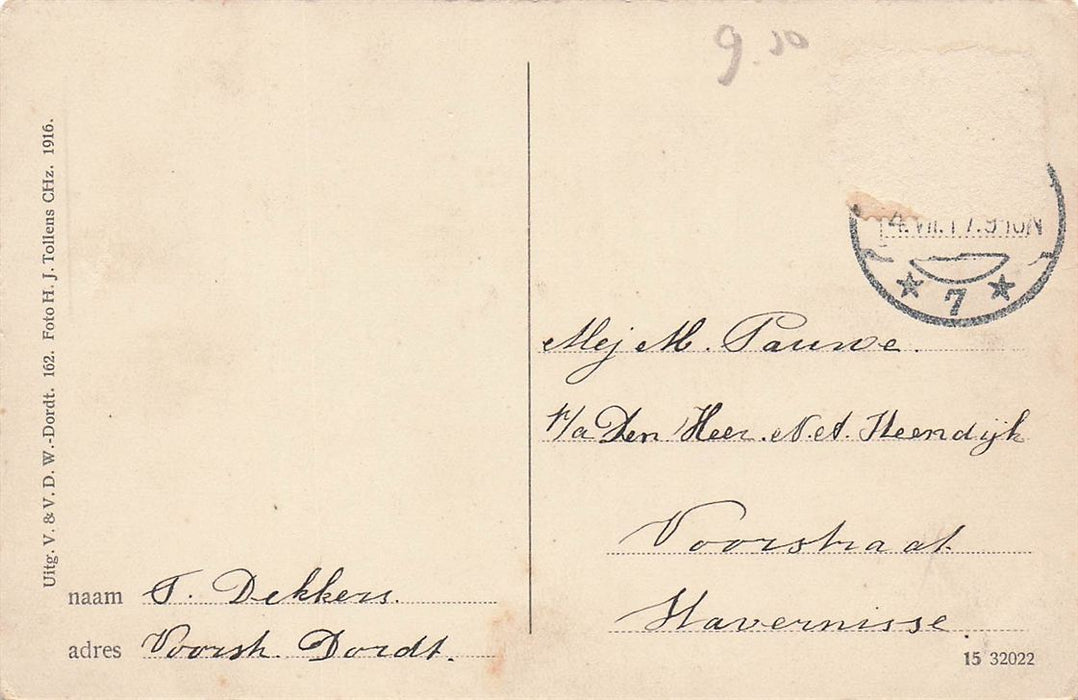 9.50
4.VII.17.9-10N
7
Uitg. V. & V. D. W.-Dordt. 162. Foto H. J. Tollens CHz. 1916.
Mej M. Pauwe.
p/a Den Heer. N.A. Steendijk
Voorstraat
Stavernisse.
naam T. Dekkers.
adres Voorstr. Dordt.
15 32022